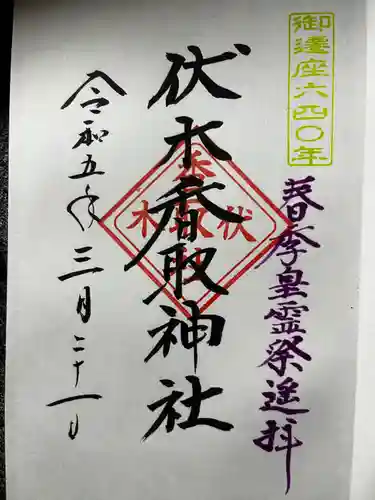 御遷座六四〇年
春季皇霊祭遙拝
伏木香取神社
令和五年三月二十一日